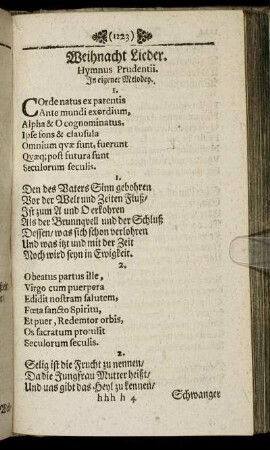 (1223)
Weihnacht Lieder.
Hymnus Prudentii.
In eigener Melodey.
1.
COrde natus ex parentis
Ante mundi exordium,
Alpha & O cognominatus,
Ipse fons & clausula
Omnium quæ sunt, fuerunt
Quæq; post futura sunt
Seculorum seculis.
1.
Den des Vaters Sinn gebohren
Vor der Welt und Zeiten Fluß/
Ist zum A und O erkohren
Als der Brunnqvell und der Schluß
Dessen/ was sich schon verlohren
Und was itzt und mit der Zeit
Noch wird seyn in Ewigkeit.
2.
Obeatus partus ille,
Virgo cum puerpera
Edidit nostram salutem,
Fœta sancto Spiritu,
Et puer, Redemtor orbis,
Os sacratum protulit
Seculorum seculis.
2.
Selig ist die Frucht zu nennen/
Da die Jungfrau Mutter heißt/
Und uns gibt das Heyl zu kennen/
hhh h 4 Schwanger